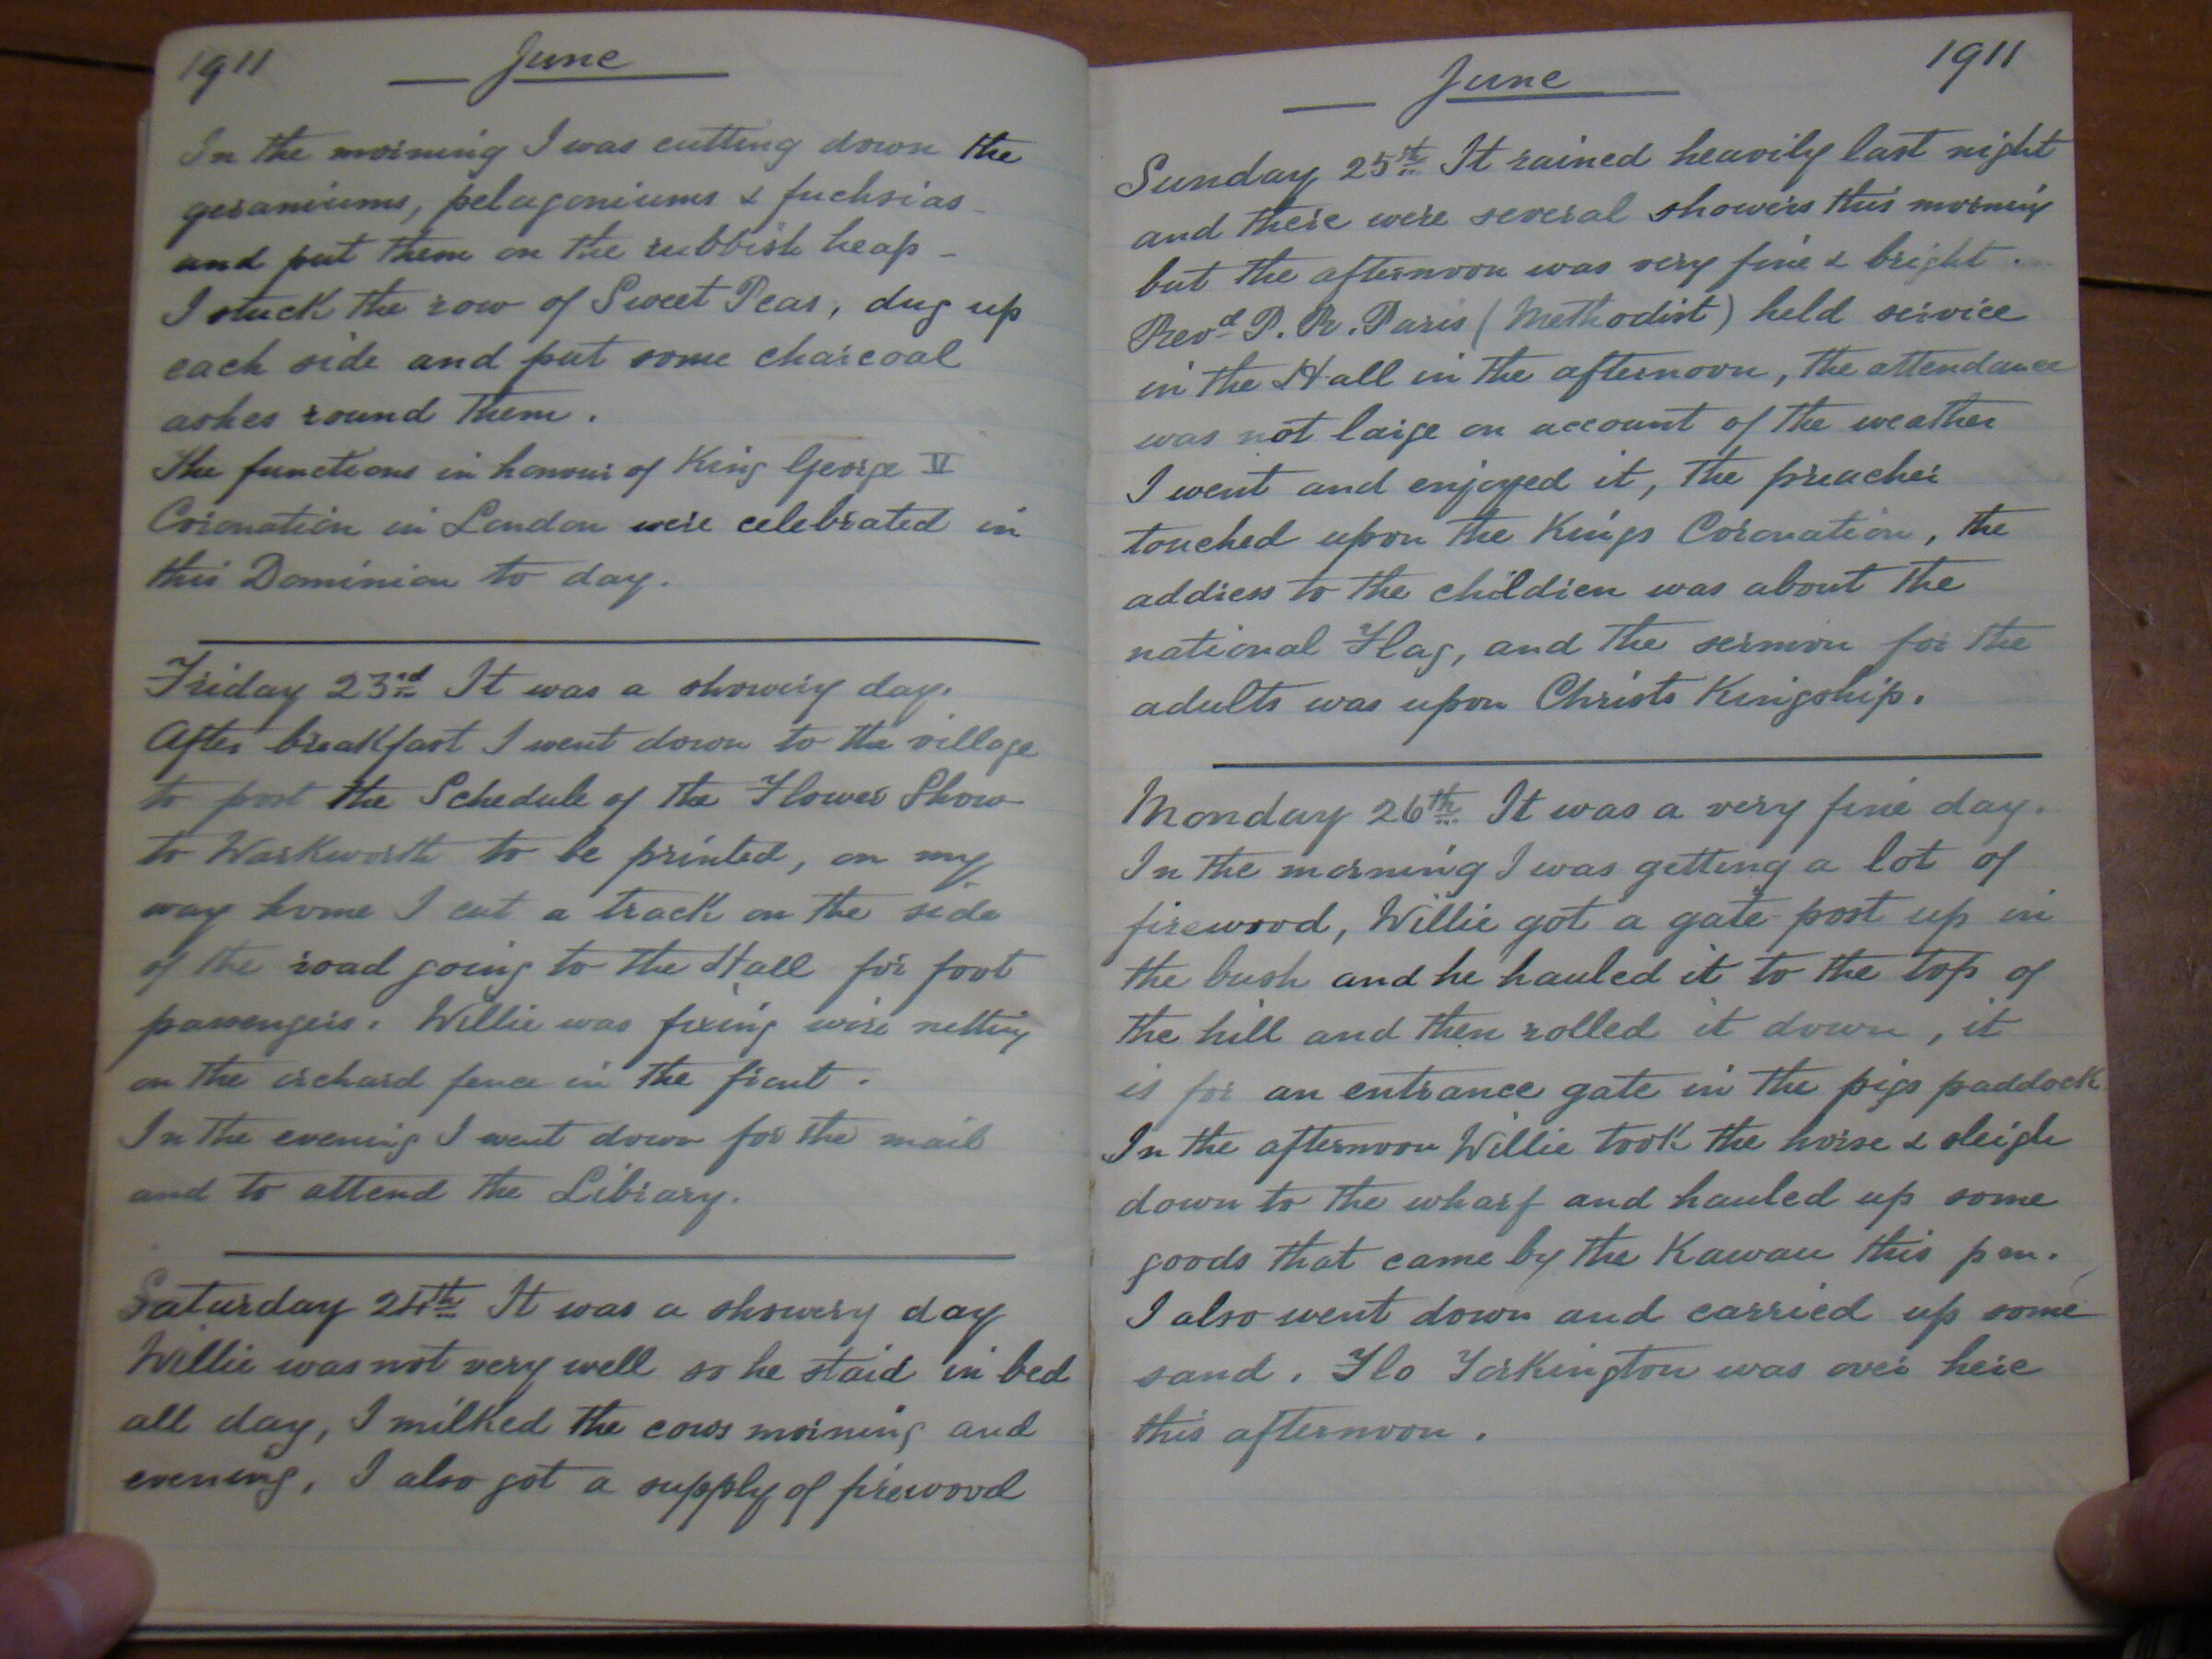 1911 June
In the morning I was cutting down the
geraniums, pelagoniums & fuchsias
and put them on the rubbish heap -
I stuck the row of Sweet Peas, dug up
each side and put some charcoal
ashes round them.
The functions in honour of King George V
Coronation in London were celebrated in
this Dominion to day.
Friday 23rd It was a showery day.
After breakfast I went down to the village
to post the Schedule of the Flower Show
to Warkworth to be printed, on my
way home I cut a track on the side
of the road going to the Hall for foot
passengers. Willie was fixing wire netting
on the orchard fence in the front.
In the evening I went down for the mail
and to attend the Library.
Saturday 24th It was a showery day
Willie was not very well so he staid in bed
all day, I milked the cows morning and
evening, I also got a supply of firewood
June 1911
Sunday 25th It rained heavily last night
and there were several showers this morning
but the afternoon was very fine & bright.
Revd P. R. Paris (Methodist) held service
in the Hall in the afternoon, the attendance
was not large on account of the weather
I went and enjoyed it, the preacher
touched upon the Kings Coronation, the
address to the children was about the
national Flag, and the sermon for the
adults was upon Christs Kingship.
Monday 26th It was a very fine day.
In the morning I was getting a lot of
firewood, Willie got a gate post up in
the bush and he hauled it to the top of
the hill and then rolled it down, it
is for an entrance gate in the pigs paddock
In the afternoon Willie took the horse & sleigh
down to the wharf and hauled up some
goods that came by the Kawau this pm.
I also went down and carried up some
sand. Flo was over here
this afternoon.